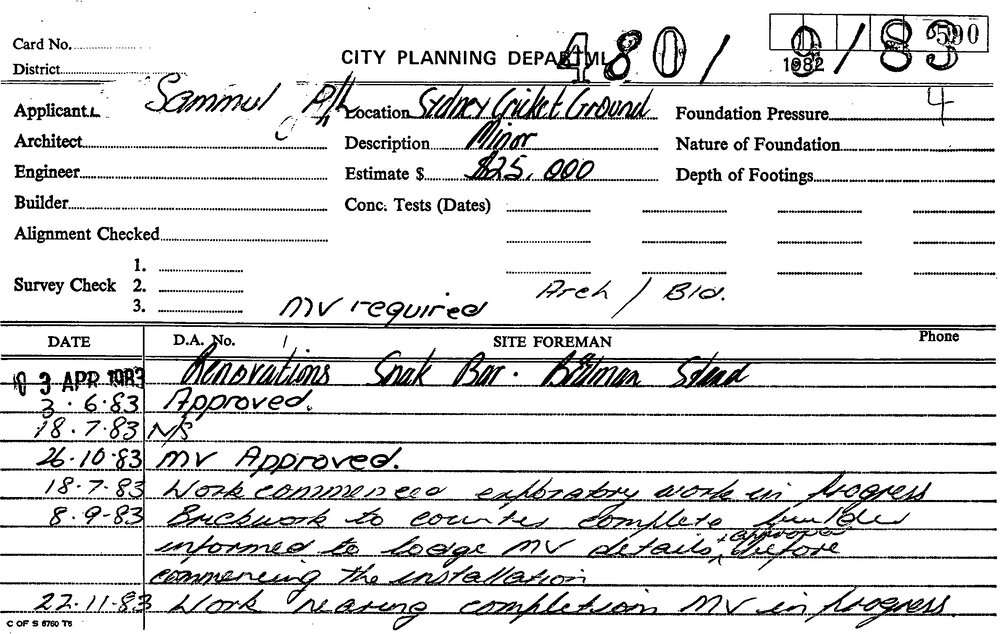 Card No.
CITY PLANNING DEPARTM
480/9/83
1982
590
District
Applicant Sammul P/L Location Sydney Cricket Ground Foundation Pressure 4
Architect Description Minor Nature of Foundation
Engineer Estimate $ $25,000 Depth of Footings
Builder Conc. Tests (Dates)
Alignment Checked
1.
Survey Check 2.
3.
MV required Arch / Bld.
DATE D.A. No. / SITE FOREMAN Phone
3 APR 1983 Renovations Snak Bar. Stand
3.6.83 Approved.
18.7.83 N/S
26.10.83 MV Approved.
18.7.83 Work commenced exploratory work in progress
8.9.83 Brickwork to counter complete builder
informed to lodge MV details + approval before
commencing the installation
22.11.83 Work nearing completion MV in progress.
C OF S 6760 T6